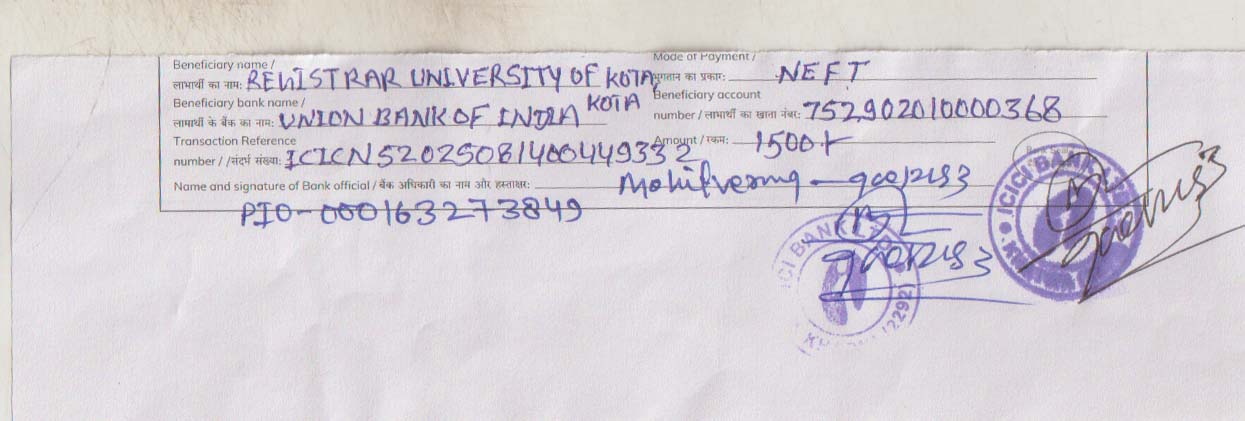 Beneficiary name / Mode of Payment /
लाभार्थी का नाम: REGISTRAR UNIVERSITY OF KOTA, भुगतान का प्रकार: NEFT
Beneficiary bank name / KOTA Beneficiary account
लाभार्थी के बैंक का नाम: UNION BANK OF INDIA number / लाभार्थी का खाता नंबर: 752902010000368
Transaction Reference Amount / रकम: 1500/-
number / /संदर्भ संख्या: ICICN52025081400449332
Name and signature of Bank official / बैंक अधिकारी का नाम और हस्ताक्षर: Mohitverma -
PIO-000163273849
ICICI BANK
ICI BANK
(2292)